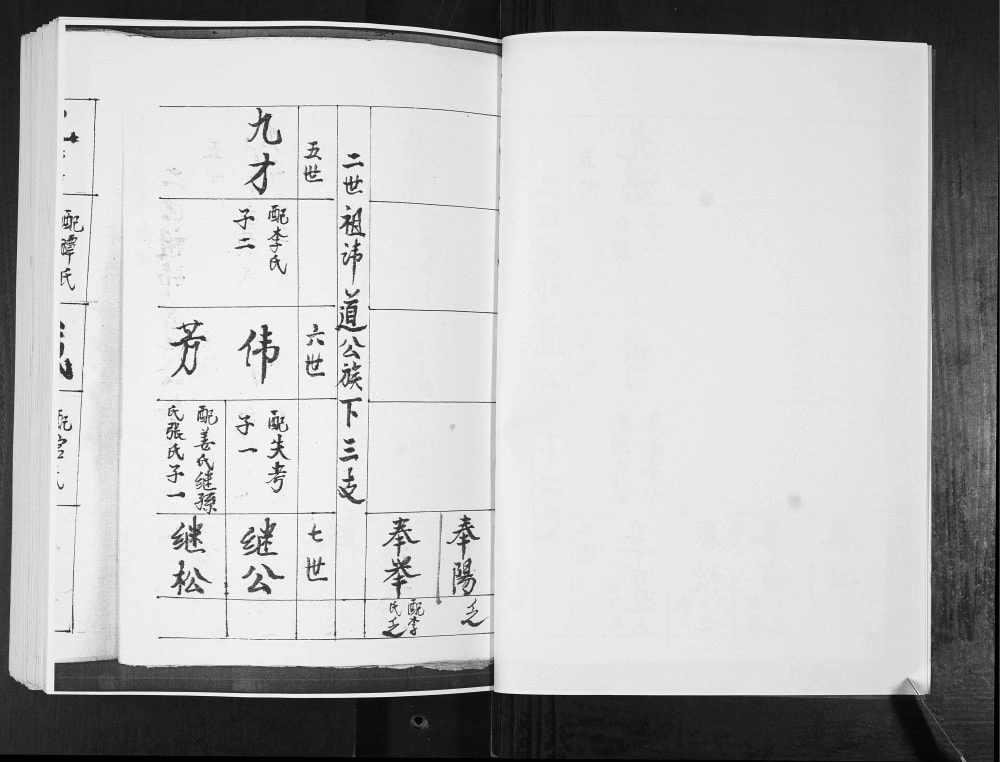 奉陽
乏
奉举
配李
氏乏
二世祖讳道公族下三支
五世
六世
七世
九才
配李氏
子二
伟
配失考
子一
继公
芳
配姜氏继孫
氏張氏子一
继松
配譚氏